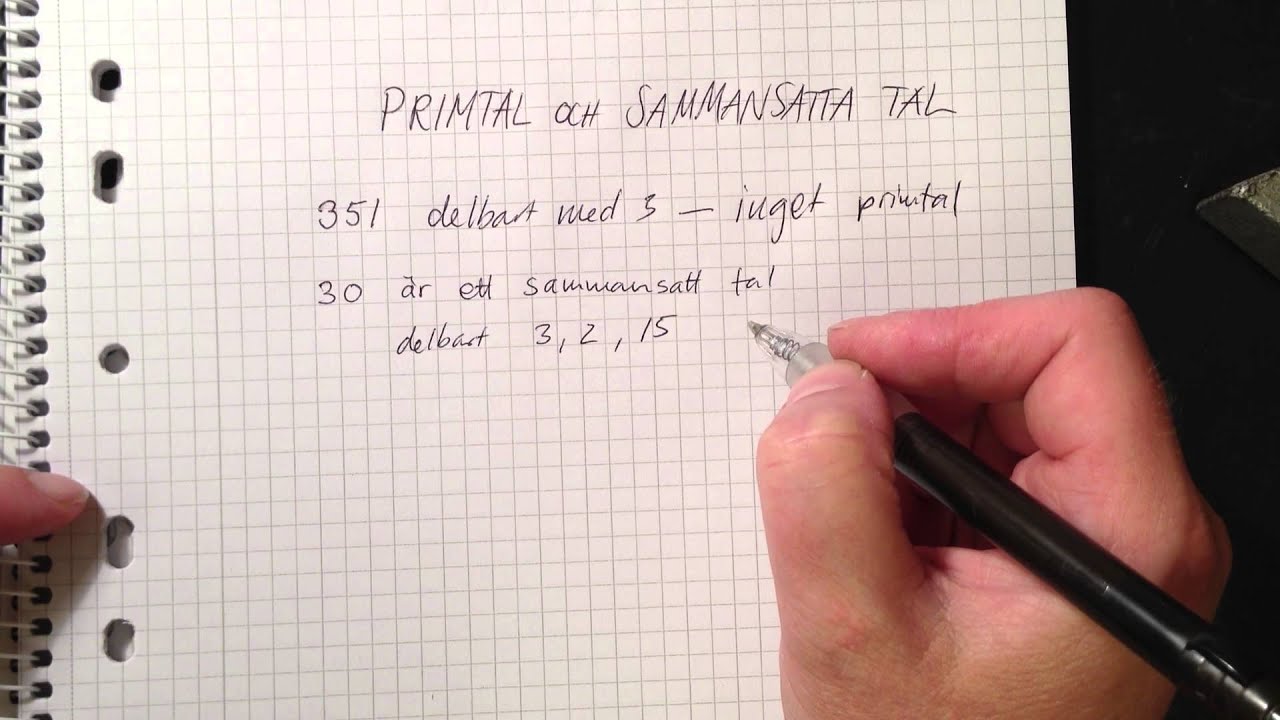 PRIMTAL OCH SAMMANSATTA TAL
351 delbart med 3 — inget primtal
30 är ett sammansatt tal
delbart 3, 2, 15